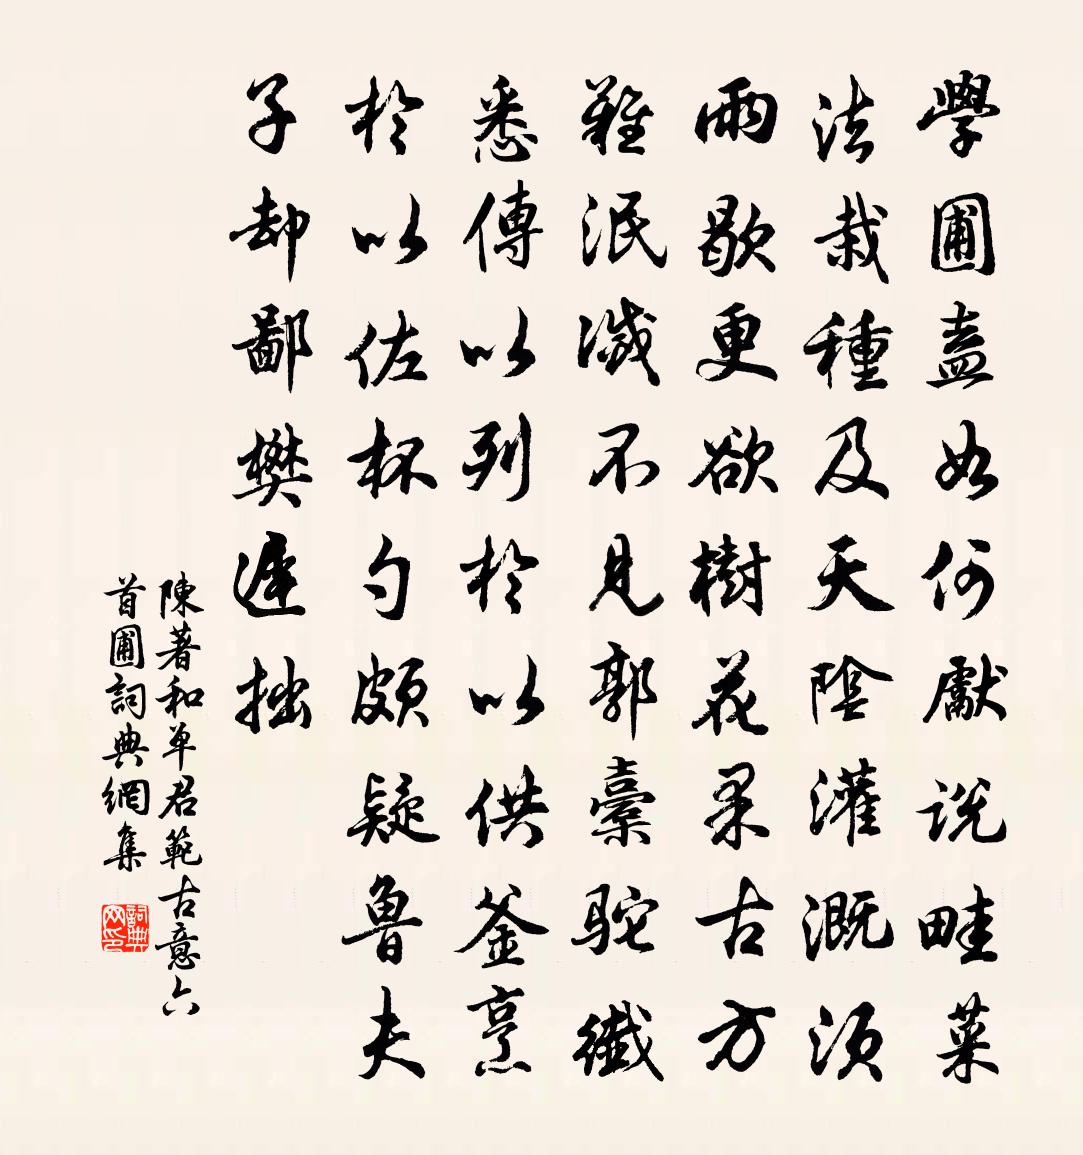 學圃盍如何獻說畦菜
法栽種及天陰灌溉須
雨歇更欲樹花果古方
難泯滅不見郭橐駝纖
悉傳以列於以供釜烹
於以佐杯勺頗疑魯夫
子却鄙樊遲拙
陳著和單君範古意六
首圃詞典網集
詞典
网印